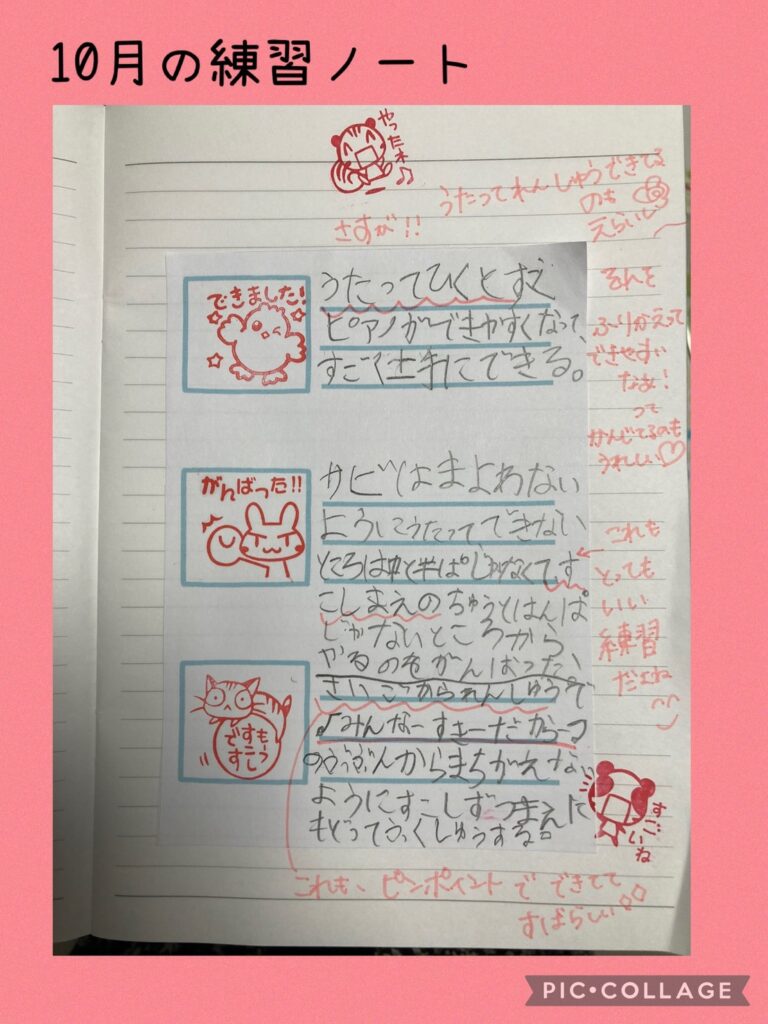 10月の練習ノート
やったネ
うたってれんしゅうできてる
のも
えらいし
さすが!!
できました!
うたってひくとすご
ピアノができやすくなって、
すごく上手にできる。
ふりかえって
できやすい
なぁ!
って
かんじてるのも
うれしい♡
がんばった!!
サビはまよわない
ようにうたってできない
ところは中と半ぱじゃなくてす
こしまえのちゅうとはんぱ
じゃないところから
やるのをがんばった、
これも
とっても
いい
練習
だよね
もうすこしです
さいごかられんしゅうで
♪みんなーすきーだからーっ
のぶぶんからまちがえない
ようにすこしずつまえに
もどってふくしゅうする。
すごいね
これも、ピンポイントでできてて
すばらしい
PIC•COLLAGE